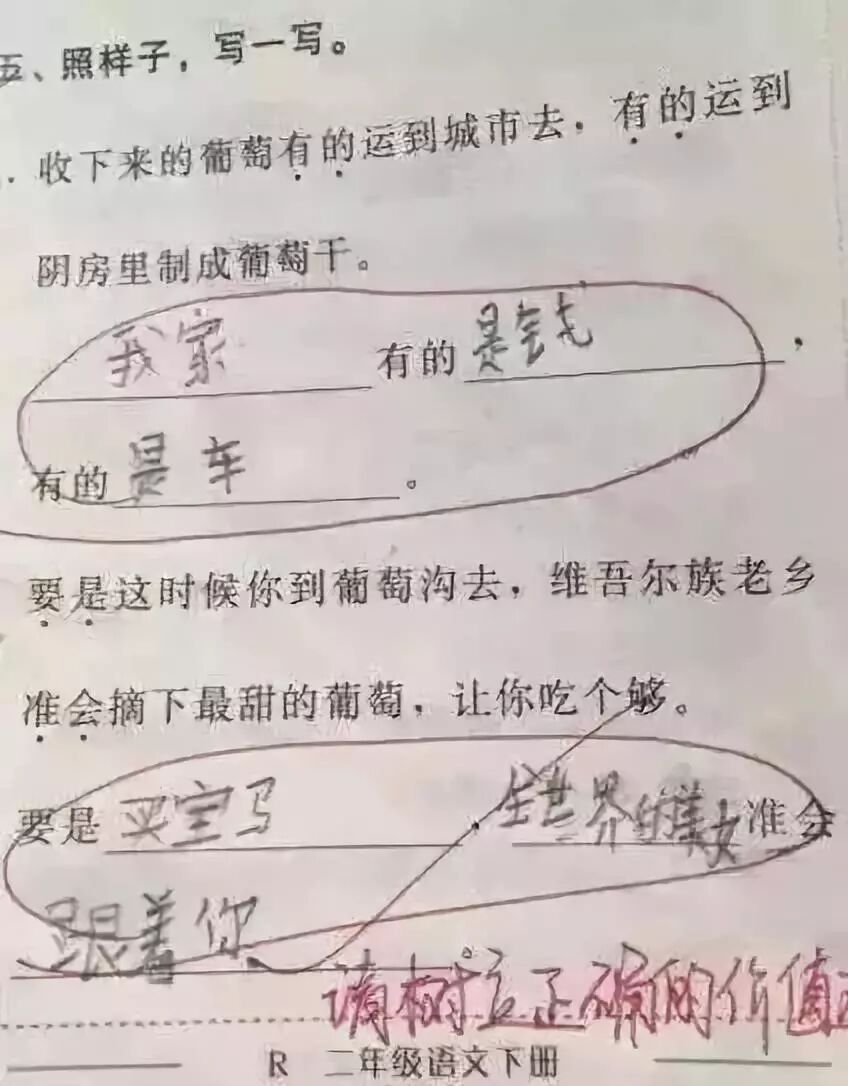 五、照样子，写一写。
. 收下来的葡萄有的运到城市去，有的运到
阴房里制成葡萄干。
我家有的是钱，
有的是车。
要是这时候你到葡萄沟去，维吾尔族老乡
准会摘下最甜的葡萄，让你吃个够。
要是买宝马，全世界的美女准会
跟着你。
请树立正确的价值
R 二年级语文下册